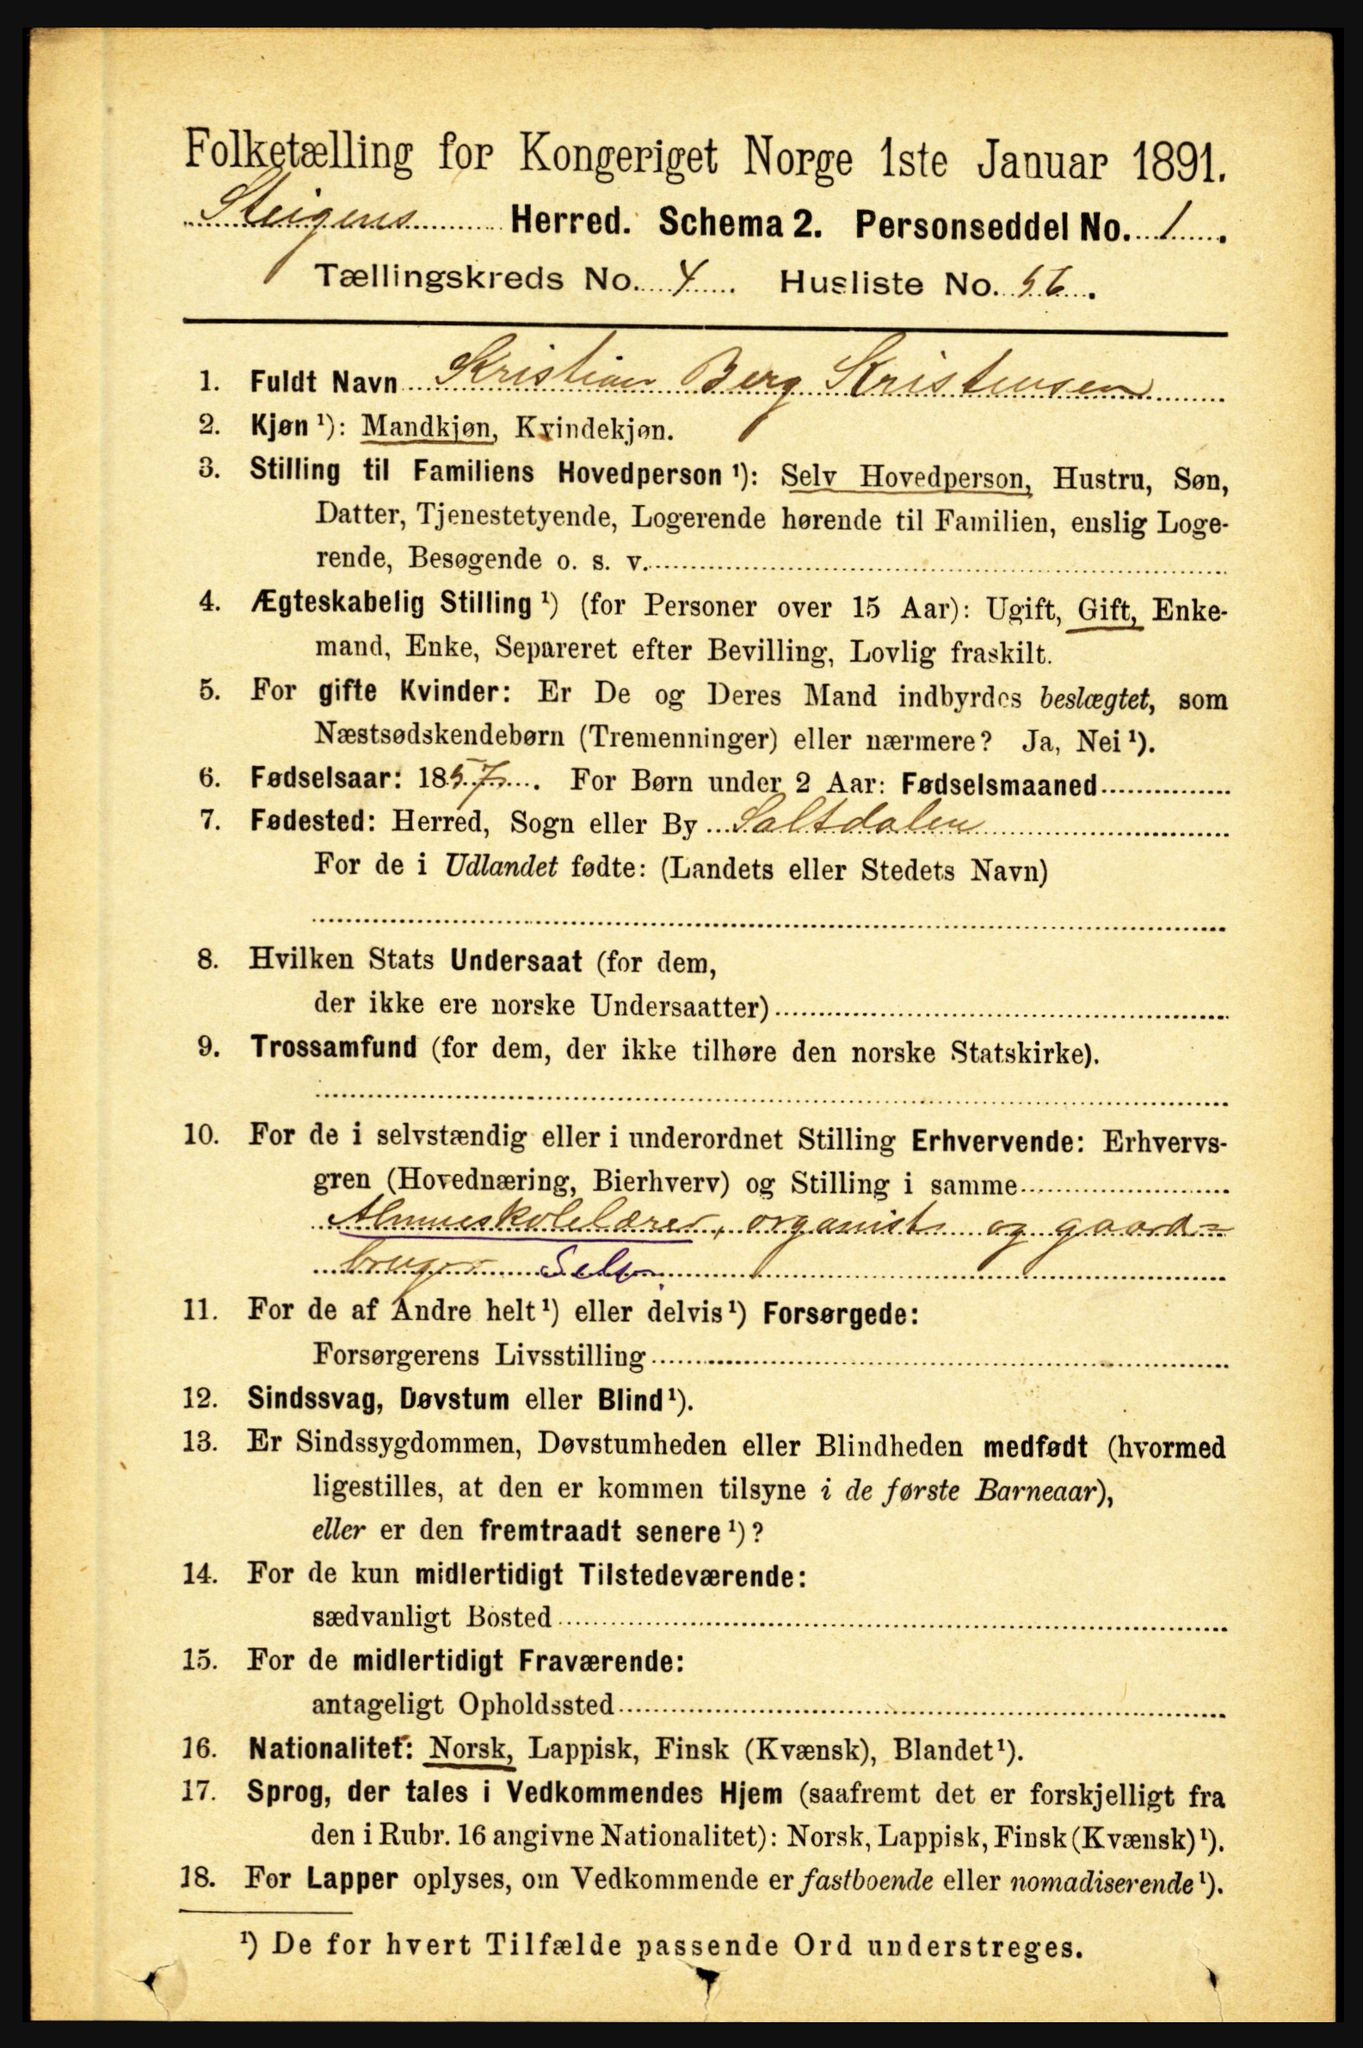 Folketælling for Kongeriget Norge 1ste Januar 1891.
Steigens Herred. Schema 2. Personseddel No. 1.
Tællingskreds No. 4. Husliste No. 56.
1. Fuldt Navn Kristian Berg Kristensen
2. Kjøn ¹): Mandkjøn, Kvindekjøn.
3. Stilling til Familiens Hovedperson ¹): Selv Hovedperson, Hustru, Søn,
Datter, Tjenestetyende, Logerende hørende til Familien, enslig Loge-
rende, Besøgende o. s. v.
4. Ægteskabelig Stilling ¹) (for Personer over 15 Aar): Ugift, Gift, Enke-
mand, Enke, Separeret efter Bevilling, Lovlig fraskilt.
5. For gifte Kvinder: Er De og Deres Mand indbyrdes beslægtet, som
Næstsødskendebørn (Tremenninger) eller nærmere? Ja, Nei ¹).
6. Fødselsaar: 1857. For Børn under 2 Aar: Fødselsmaaned
7. Fødested: Herred, Sogn eller By Saltdalen
For de i Udlandet fødte: (Landets eller Stedets Navn)
8. Hvilken Stats Undersaat (for dem,
der ikke ere norske Undersaatter)
9. Trossamfund (for dem, der ikke tilhøre den norske Statskirke).
10. For de i selvstændig eller i underordnet Stilling Erhvervende: Erhvervs-
gren (Hovednæring, Bierhverv) og Stilling i samme
Almueskolelærer, organist og gaard=
bruger Selv.
11. For de af Andre helt ¹) eller delvis ¹) Forsørgede:
Forsørgerens Livsstilling
12. Sindssvag, Døvstum eller Blind ¹).
13. Er Sindssygdommen, Døvstumheden eller Blindheden medfødt (hvormed
ligestilles, at den er kommen tilsyne i de første Barneaar),
eller er den fremtraadt senere ¹)?
14. For de kun midlertidigt Tilstedeværende:
sædvanligt Bosted
15. For de midlertidigt Fraværende:
antageligt Opholdssted
16. Nationalitet: Norsk, Lappisk, Finsk (Kvænsk), Blandet ¹).
17. Sprog, der tales i Vedkommendes Hjem (saafremt det er forskjelligt fra
den i Rubr. 16 angivne Nationalitet): Norsk, Lappisk, Finsk (Kvænsk) ¹).
18. For Lapper oplyses, om Vedkommende er fastboende eller nomadiserende ¹).
¹) De for hvert Tilfælde passende Ord understreges.